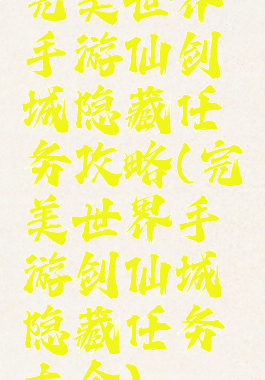 完美世界
手游仙剑
城隐藏任
务攻略(完
美世界手
游剑仙城
隐藏任务
大全)